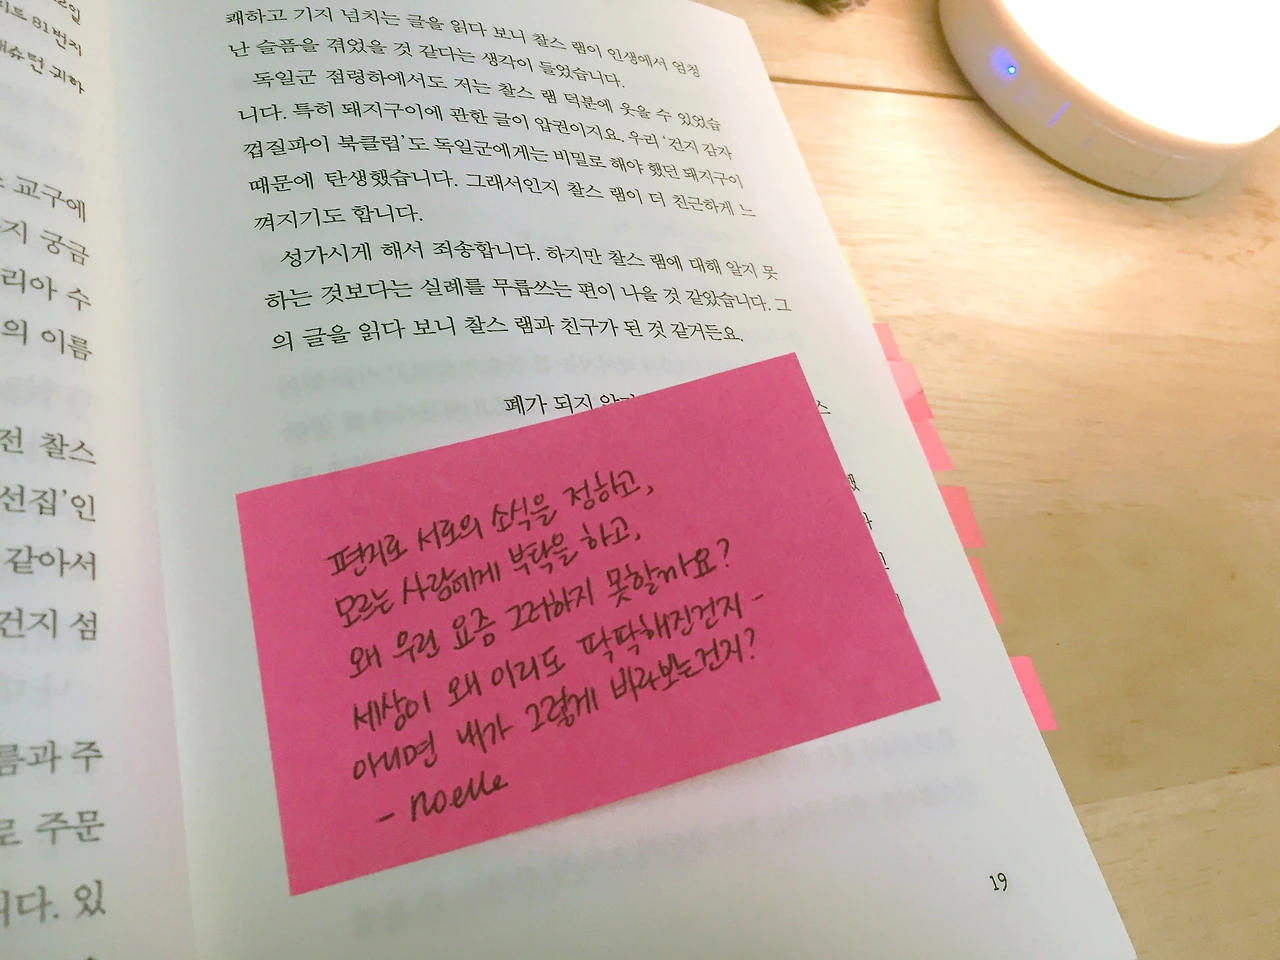 8일
리트 81번지
애슈턴 귀하
교구에
지 궁금
리아 수
의 이름
전 찰스
선집'인
같아서
건지 섬
름과 주
로 주문
니다. 있
쾌하고 기지 넘치는 글을 읽다 보니 찰스 램이 인생에서 엄청
난 슬픔을 겪었을 것 같다는 생각이 들었습니다.
독일군 점령하에서도 저는 찰스 램 덕분에 웃을 수 있었습
니다. 특히 돼지구이에 관한 글이 압권이지요. 우리 '건지 감자
껍질파이 북클럽'도 독일군에게는 비밀로 해야 했던 돼지구이
때문에 탄생했습니다. 그래서인지 찰스 램이 더 친근하게 느
껴지기도 합니다.
성가시게 해서 죄송합니다. 하지만 찰스 램에 대해 알지 못
하는 것보다는 실례를 무릅쓰는 편이 나을 것 같았습니다. 그
의 글을 읽다 보니 찰스 램과 친구가 된 것 같거든요.
폐가 되지
스
편지로 서로의 소식을 정하고,
모르는 사람에게 부탁을 하고,
왜 우린 요즘 그러하지 못할까요?
세상이 왜 이리도 딱딱해진건지 -
아니면 내가 그렇게 바라보는건지?
- noelle
19